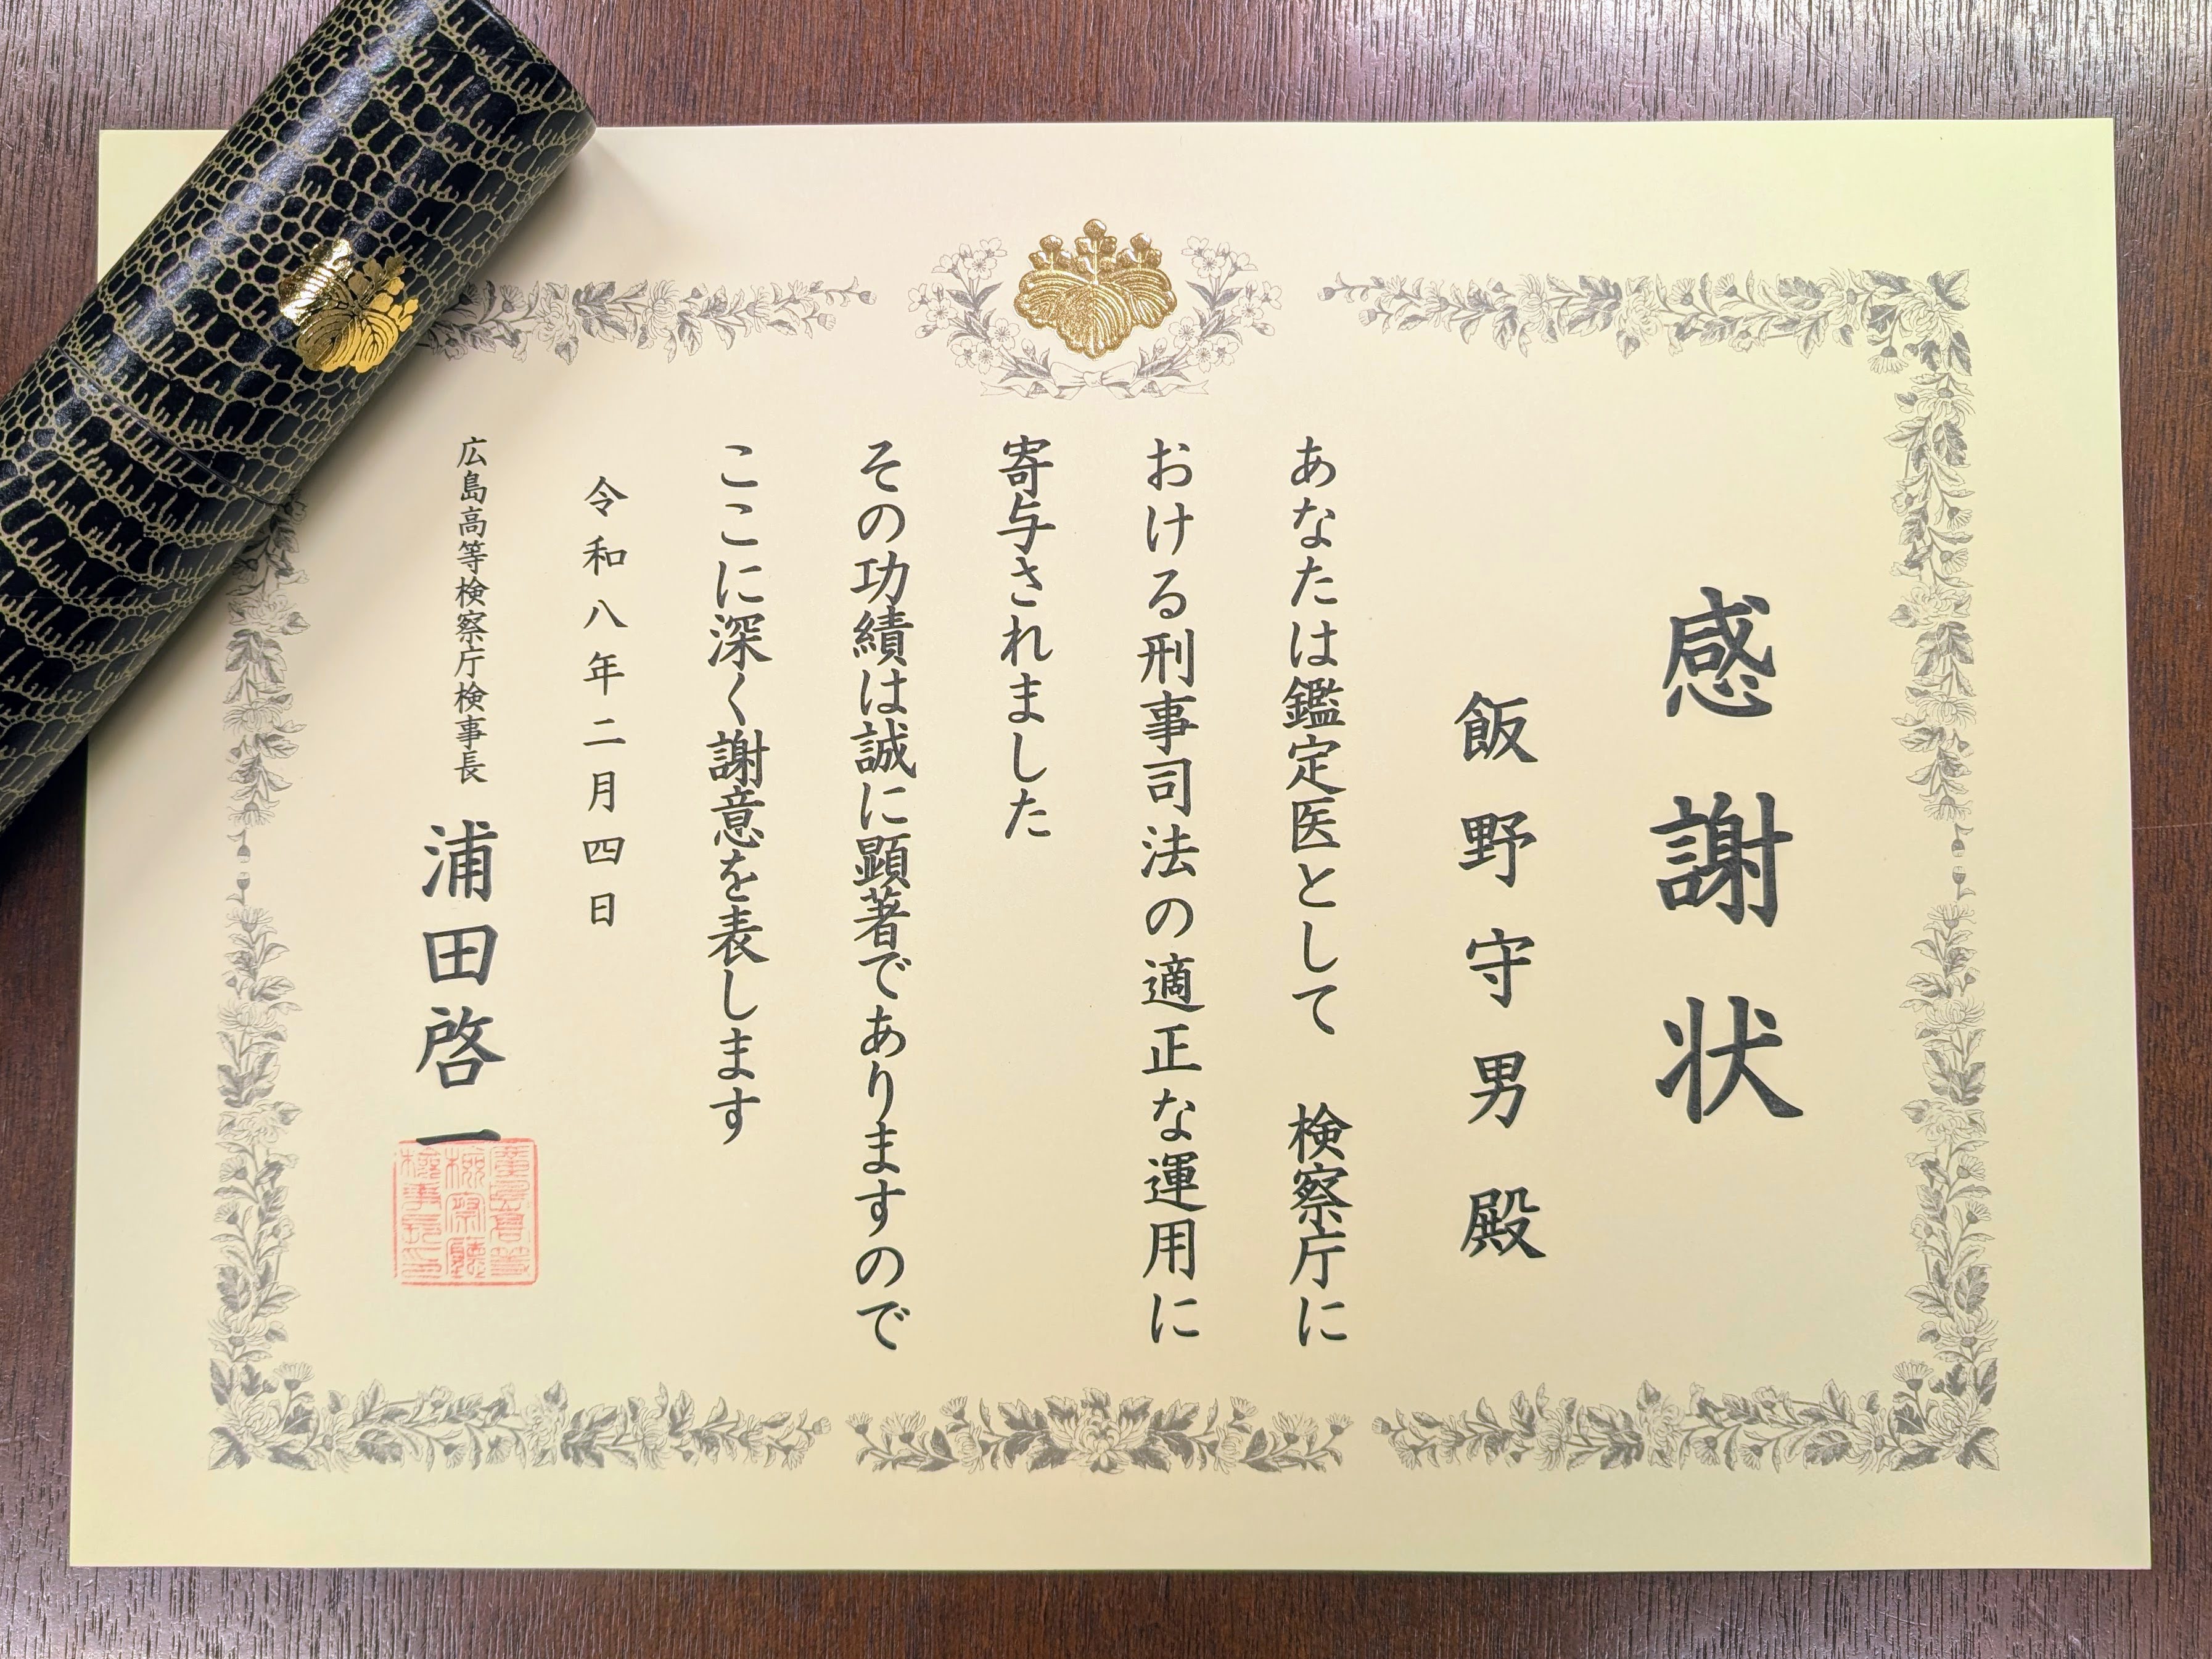 感謝状
飯野守男殿
あなたは鑑定医として　検察庁に
おける刑事司法の適正な運用に
寄与されました
その功績は誠に顕著でありますので
ここに深く謝意を表します
令和八年二月四日
広島高等検察庁検事長　浦田啓一
廣島高等
檢察廳
檢事長印